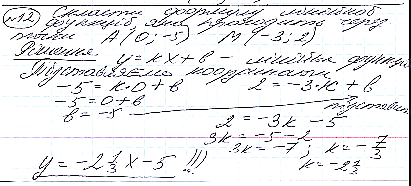 №12. Скласти формулу лінійної
функції, яка проходить через
точки A(0; -5) M(-3; 2)
Рішення.
y = kx + b - лінійна функція
Підставляємо координати
-5 = k·0 + b 2 = -3·k + b
-5 = 0 + b
b = -5 підставим
2 = -3k - 5
3k = -5 - 2
3k = -7; k = -7/3
y = -2 1/3 x - 5 !!) k = -2 1/3